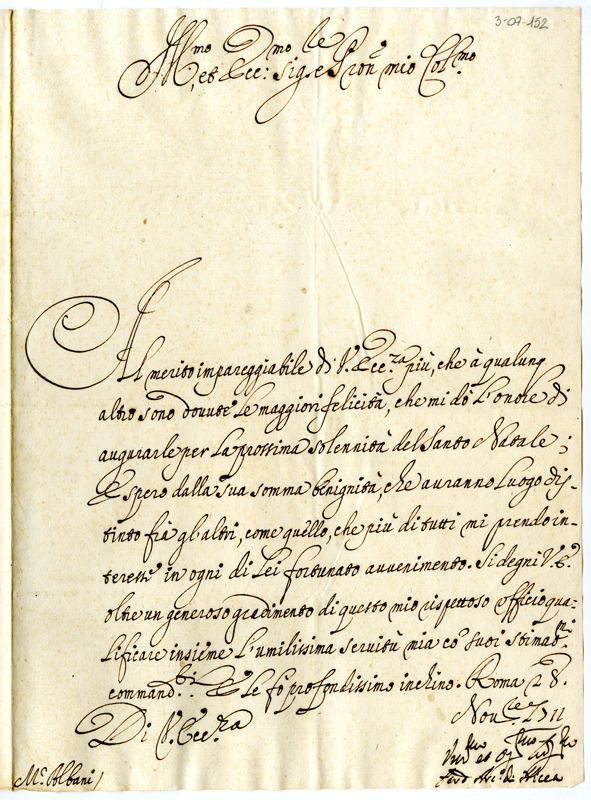 3-07-152
Ill.mo et Ecc.mo Sig.re e Pron mio Col.mo
Al merito impareggiabile di V. Ecc.za più, che à qualunq
altro sono dovute le maggiori felicità, che mi dò l'onore di
augurarle per la prossima solennità del Santo Natale;
e spero dalla sua somma benignità, che auranno luogo dis-
tinto frà gl'altri, come quello, che più di tutti mi prendo in-
teresse in ogni di Lei fortunato avvenimento. Si degni V. E.
oltre un generoso gradimento di questo mio rispettoso officio qua-
lificare insieme l'umilissima servitù mia co' suoi stimat.mi
command.ti. E le fo profondissimo inchino. Roma 28.
Nov.re 1711
Di V. Ecc.za
M.r Albani